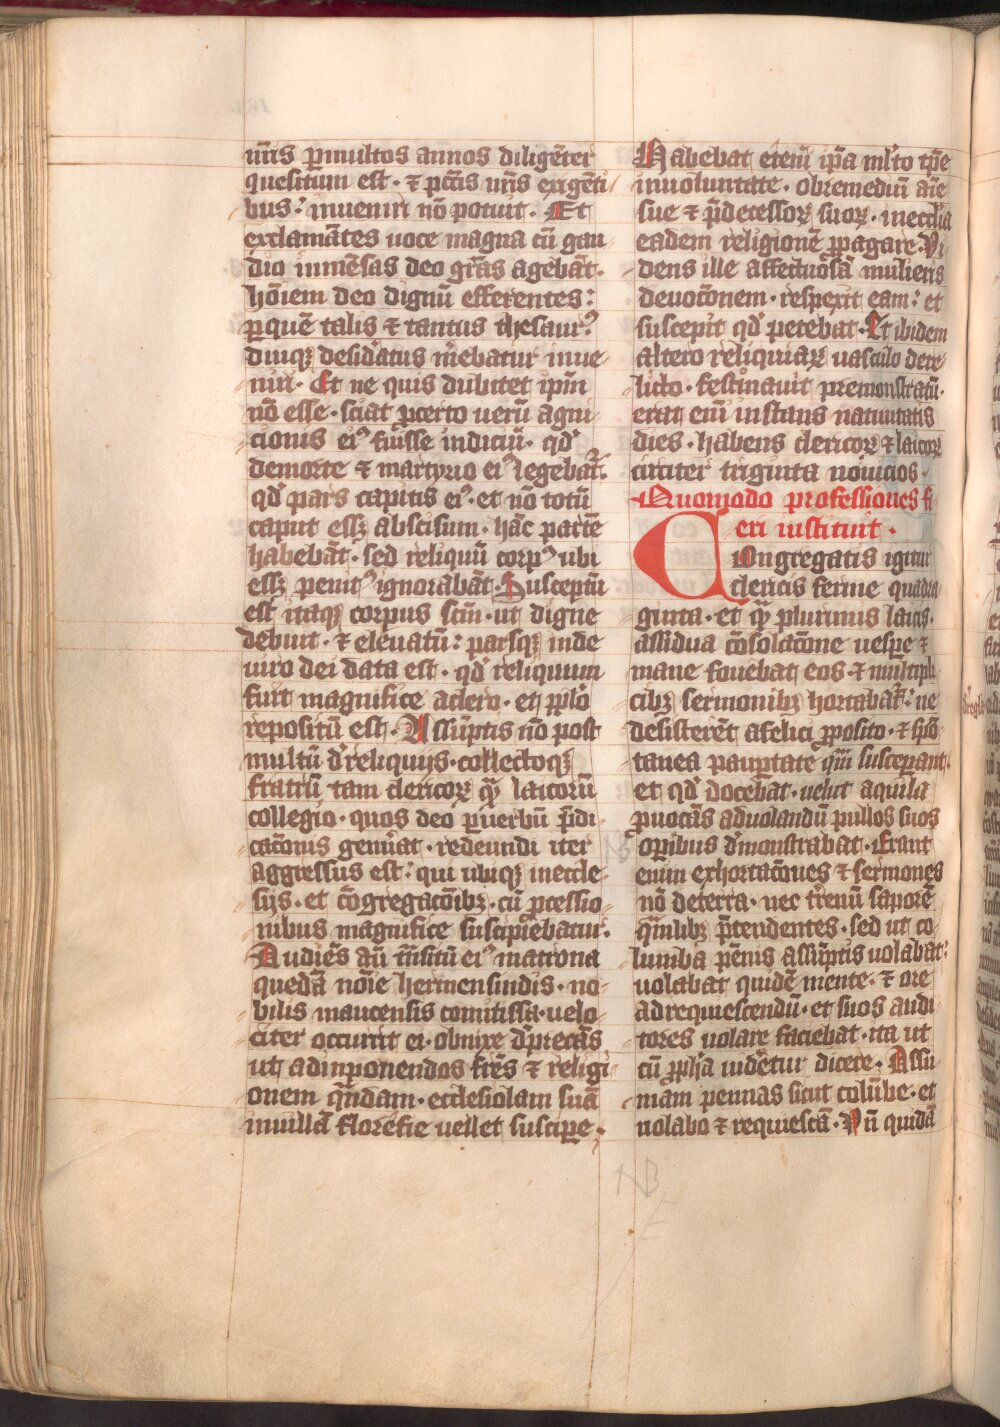 nr̄is ꝑ multos annos diligēter
quesitum est · ⁊ pctīs nr̄is exigēti
bus : inueniri nō potuit · Et
exclamātes uoce magna cū gau
dio inmēsas deo gr̄as agebāt ·
hōiem deo dignū efferentes :
ꝑ quē talis ⁊ tantus thesaurꝰ
diuqꝫ desid̓atus m̓ebatur inue
niri · Et ne quis dubitet ip̄m
nō esse · sciat ꝓcerto uerū agni
cionis eiꝰ fuisse indiciū · qd̓
demorte ⁊ martyrio eiꝰ legebat̄ ·
qd̓ pars capitis eiꝰ · et nō totū
caput essꝫ abscisum · hāc partē
habebāt · sed reliquū corpꝰ ubi
essꝫ penitꝰ ignorabāt · Susceptū
est itaqꝫ corpus scm̄ · ut digne
debuit · ⁊ eleuatū : parsqꝫ inde
uiro dei data est · qd̓ reliquum
fuit magnifice aclero · et pp̄lo
repositū est · Assūptis nō post
multū d̓reliquijs · collectoqꝫ
fratrū tam clericoꝝ qꝫ̄ laicorū
collegio · quos deo ꝑ uerbū p̄di
cac̄onis genūat · redeundi iter
aggressus est : qui ubiqꝫ inecclē
sijs · et cōgregacōibꝫ · cū ꝓcessio
nibus magnifice suscipiebatur ·
Audiēs aū tn̄sitū eiꝰ matrona
quedā nōie hermensindis · no
bilis namcensis comitissa · uelo
citer occurrit ei · obnixe d̓precās
ut adinponendos fr̄es ⁊ religi
onem qn̄dam · ecclesiolam suā
inuillā floreffie uellet suscipe ·
Habebat etem̄ ip̄a ml̄to tp̄e
inuoluntate · obremediū aīe
sue ⁊ p̄decessoꝝ suoꝝ · inecclīa
eadem religionē ꝓpagare · Vi
dens ille affectuōsā mulieris
deuotōnem · respexit eam : et
suscepit qd̓ petebat · Et ibidem
altero reliquiaꝝ uasculo dere
licto · festinauit premonstratū ·
erat em̄ instans natiuitatis
dies · habens clericoꝝ ⁊ laicoꝝ
circiter triginta nouicios ·
Quomodo professiones fi
eri instituit ·
Congregatis igitur
clericis ferme quadra
ginta · et qꝫ̄ plurimis laicis ·
assidua cōsolacōne uespe ⁊
mane fouebat eos ⁊ multipli
cibꝫ sermonibꝫ hortabat̄ : ne
desisterēt afelici ꝓposito · ⁊ spō
tanea pauꝑtate qm̄ susceperant
et qd̓ docebat · uelut aquila
ꝓuocās aduolandū pullos suos
oꝑibus d̓monstrabat · Erant
enim exhortacōnes ⁊ sermones
nō deterra · nec t̓renū saporē
qm̄libꝫ p̄tendentes · sed ut co
lumba pēnis assūptis uolabat :
uolabat quidē mente · ⁊ ore
adrequiescendū · et suos audi
tores uolare faciebat · ita ut
cū ꝓph̄a uid̓etur dicere · Assu
mam pennas sicut colūbe · et
uolabo ⁊ requiescā · Vn̄ quidā